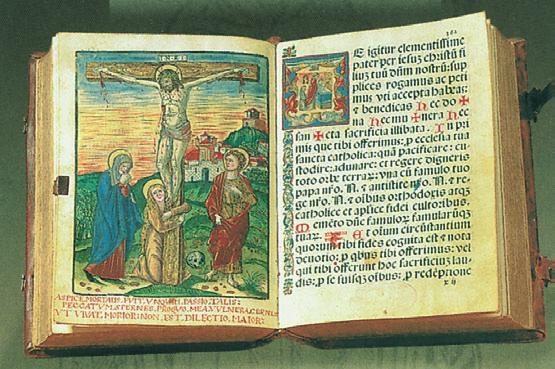 ASPICE, MORTALIS, FVIT. VNQVAM. PASSIO. TALIS:
PECCATVM. SPERNES. PROQVO. MEA. VVLNERA. CERNIS
VT VIVAS. MORIOR. NON. EST. DILECTIO. MAIOR:
E igitur clementissime
pater per iesuz christū fi
liuz tuū dñm nostrū: sup
plices rogamus ac peti
mus vti accepta habeas:
& benedicas hec do ✠
na hec mu ✠ nera hec
san ✠ cta sacrificia illibata. In pri
mis que tibi offerimus: ꝓ ecclesia tua
sancta catholica: quā pacificare: cu
stodire: adunare: et regere digneris
toto orbe terraꝝ: vna cū famulo tuo
papa nr̄o. N. & antistite nr̄o. N. & re
ge nr̄o. N. & oībus orthodoxis atqꝫ
catholice et aplice fidei cultoribus.
Memēto dñe famuloꝝ famularūqꝫ
tuaꝝ. Et oīum circūstantiū
quorum tibi fides cognita est & nota
deuotio: ꝓ qbus tibi offerimus: vel
qui tibi offerunt hoc sacrificiuz lau-
dis: ꝓ se suisqꝫ oībus: ꝓ redēptione